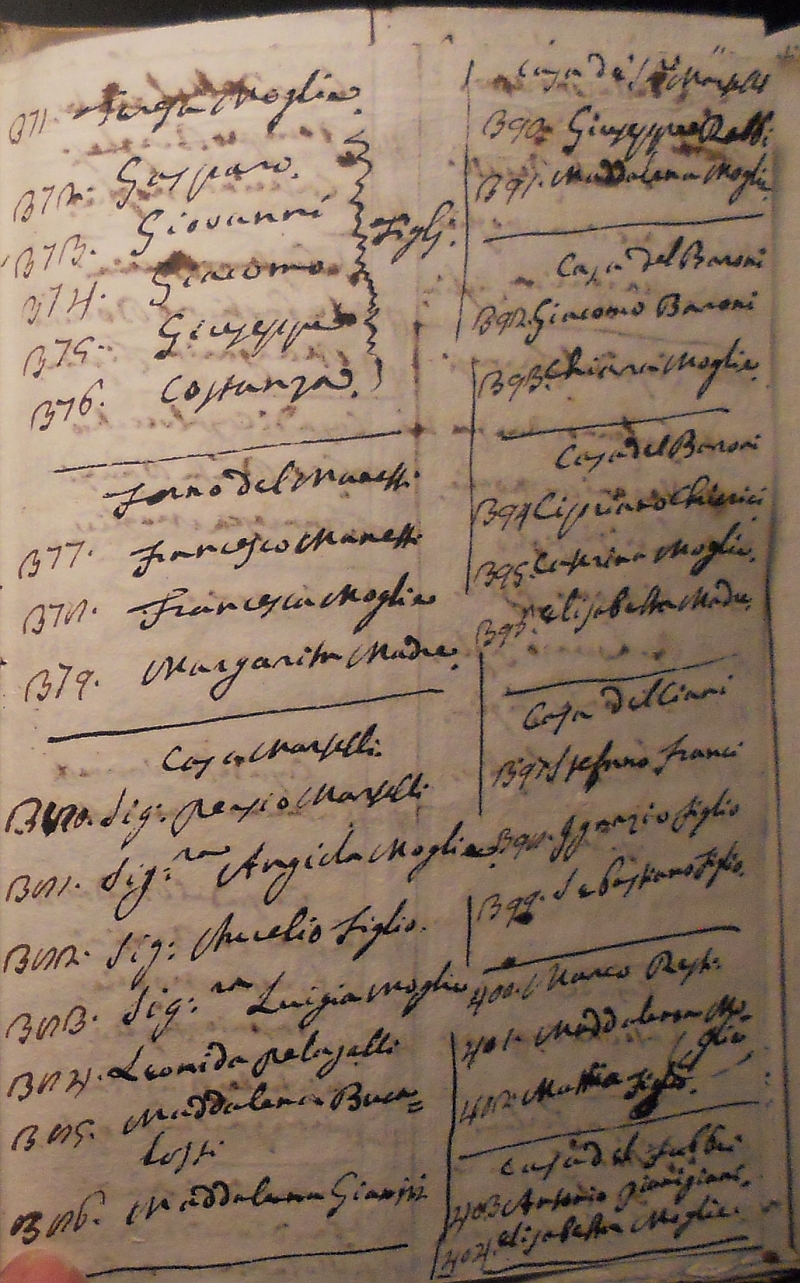 371. Teresa Moglie
372. Gasparo.
373. Giovanni
374. Giacomo
375. Giuseppe
376. Costanza.
Figli.
Forno del Manetti
377. Francesco Manetti
378. Francesca Moglie
379. Margarita Madre.
Casa Marselli.
380. Sig: Persio Marselli
381. Sig:ra Angiela Moglie
382. Sig: Aurelio Figlio.
383. Sig:ra Luigia Moglie
384. Leonida Pelagalli
385. Maddalena Buca=
lossi
386. Maddalena
Casa de
390. Giuseppe
391. Maddalena Moglie
Casa del Baroni
392. Giacomo Baroni
393. Chiara Moglie.
Casa del Baroni
394 Cipriano Chierici
395. Caterina Moglie.
396. Elisabetta Madre.
Casa del Ciani
397. Stefano Franci
398. Ignazio Figlio
399. Sebastiano Figlio.
400. Marco
401. Maddalena Mo=
glie
402. Mattia Figlio.
Casa del Fabbri
403 Antonio
404. Elisabetta Moglie.